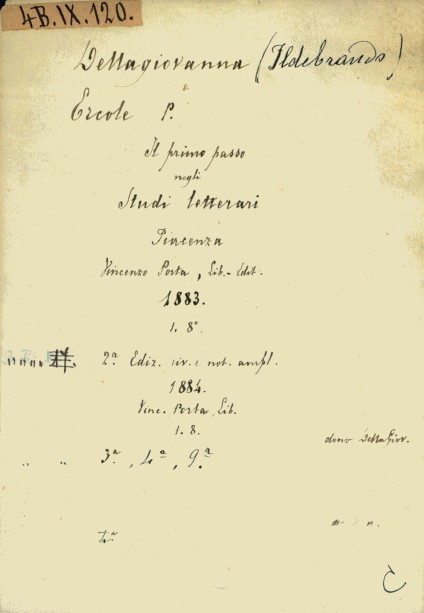 4B.IX.120.
Dellagiovanna (Ildebrando)
e
Ercole P.
Il primo passo
negli
Studi letterari
Piacenza
Vincenzo Porta, Lib.-Edit.
1883.
1. 8°
2ª Ediz. riv. e not. ampl.
1884.
Vinc. Porta, Lib.
1. 8.
dono Dellagiov.
" " 3ª, 4ª, 9ª
C